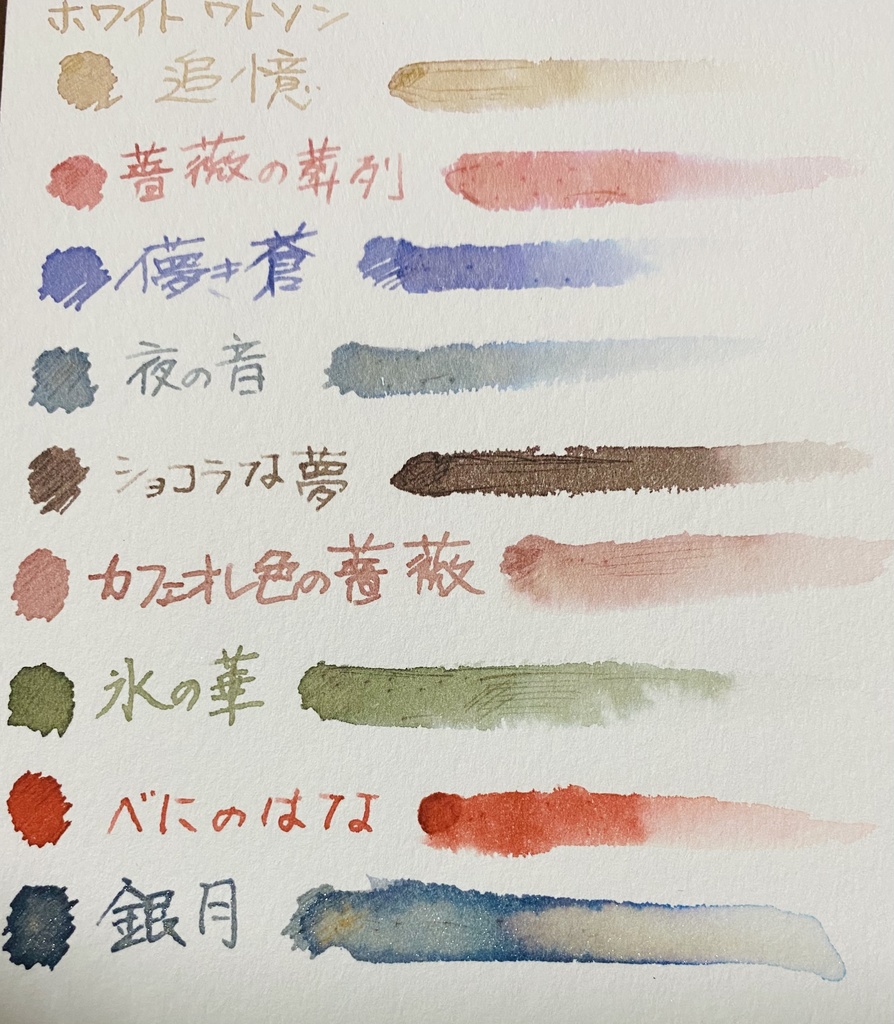 ホワイト ワトソン
追憶
薔薇の葬列
儚き蒼
夜の音
ショコラな夢
カフェオレ色の薔薇
氷の華
べにのはな
銀月